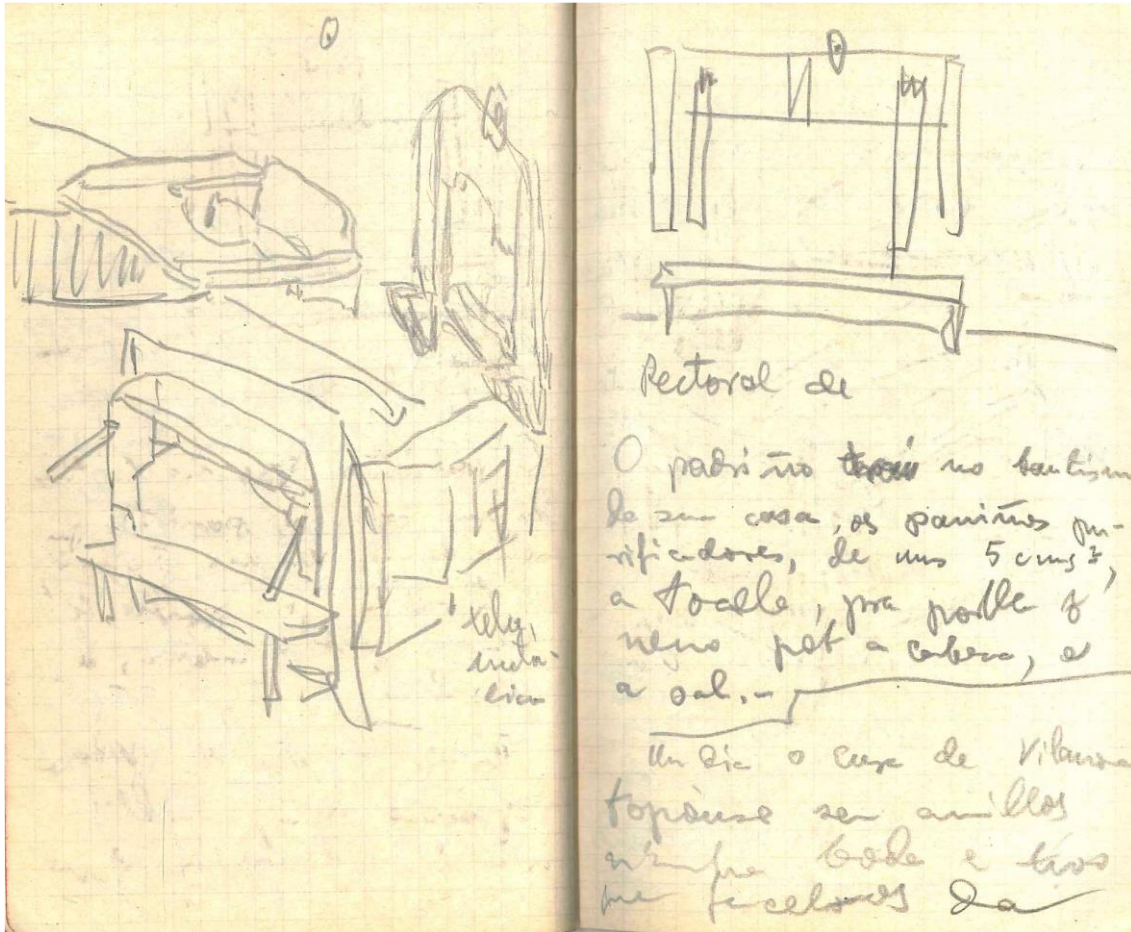 tela
metálica
Pectoral de
O padriño no bautismo
de sua casa, os paniños pu-
rificadores, de uns 5 cms²,
a toalla, pra poñela o
neno pol a cabeza, e
a sal.-
Un día o cura de Vilanova
topouse sen anillos
boda e tivo
que facelos da